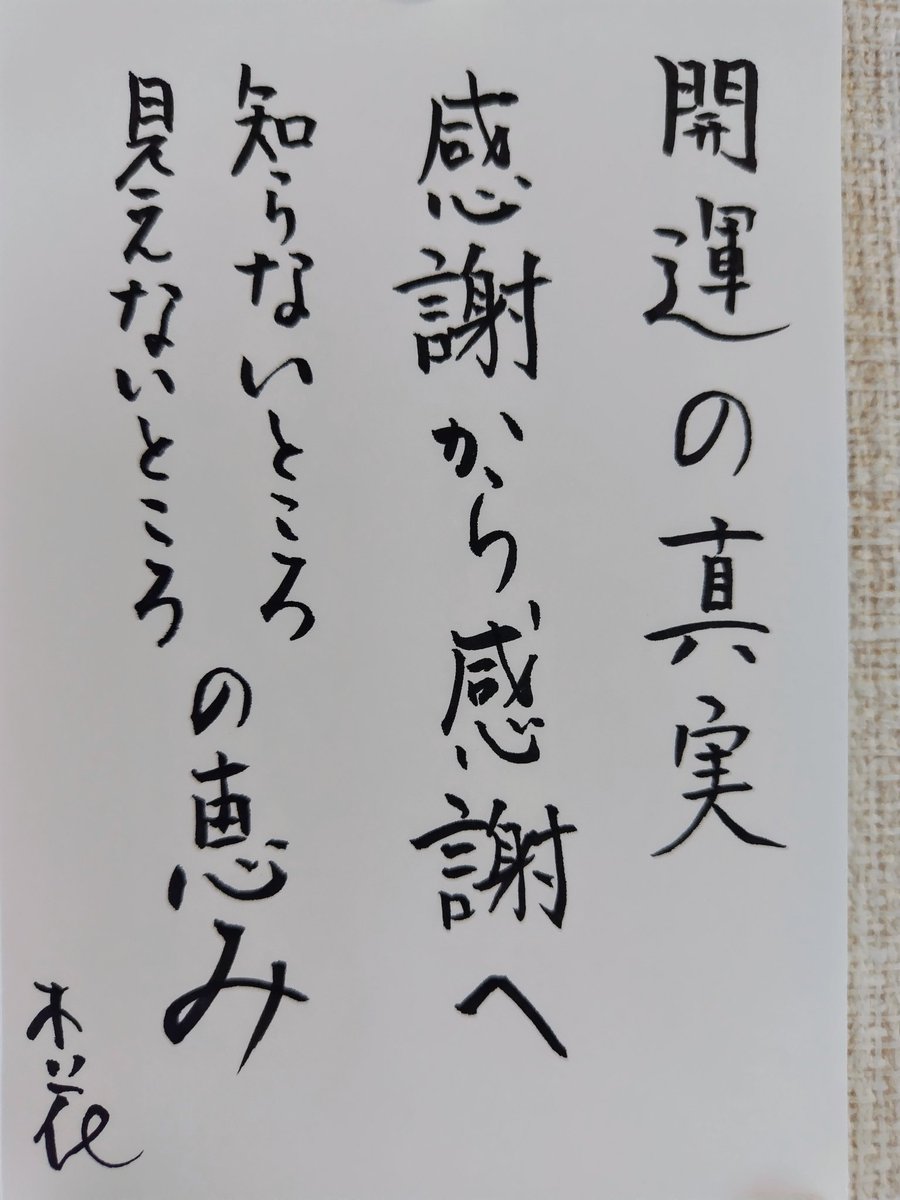 開運の真実
感謝から感謝へ
知らないところ
見えないところ
の恵み
木花